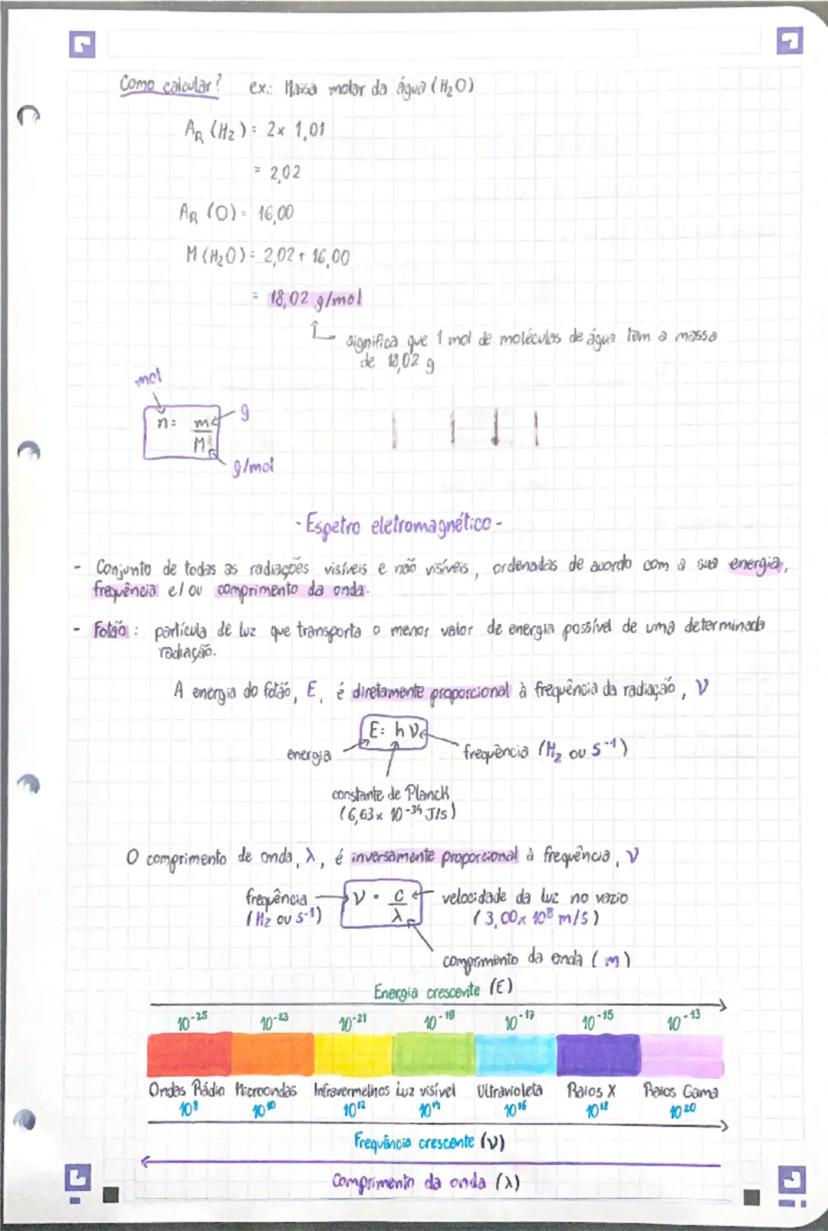 Como calcular? ex.: Massa molar da água (H₂O)
A_R (H₂) = 2 × 1,01
= 2,02
A_R (O) = 16,00
M (H₂O) = 2,02 + 16,00
= 18,02 g/mol
significa que 1 mol de moléculas de água tem a massa
de 18,02 g
mol
n = m/M
g
g/mol
- Espetro eletromagnético -
- Conjunto de todas as radiações visíveis e não visíveis, ordenadas de acordo com a sua energia,
frequência e/ou comprimento da onda.
- Fotão: partícula de luz que transporta o menor valor de energia possível de uma determinada
radiação.
A energia do fotão, E, é diretamente proporcional à frequência da radiação, ν
E = h ν
energia
frequência (Hz ou s⁻¹)
constante de Planck
(6,63 × 10⁻³⁴ J/s)
O comprimento de onda, λ, é inversamente proporcional à frequência, ν
frequência
(Hz ou s⁻¹)
ν = c/λ
velocidade da luz no vazio
(3,00 × 10⁸ m/s)
comprimento da onda (m)
Energia crescente (E)
10⁻²⁵ 10⁻²³ 10⁻²¹ 10⁻¹⁹ 10⁻¹⁷ 10⁻¹⁵ 10⁻¹³
Ondas Rádio Microondas Infravermelhos Luz visível Ultravioleta Raios X Raios Gama
10⁸ 10¹⁰ 10¹² 10¹⁴ 10¹⁶ 10¹⁸ 10²⁰
Frequência crescente (ν)
Comprimento da onda (λ)